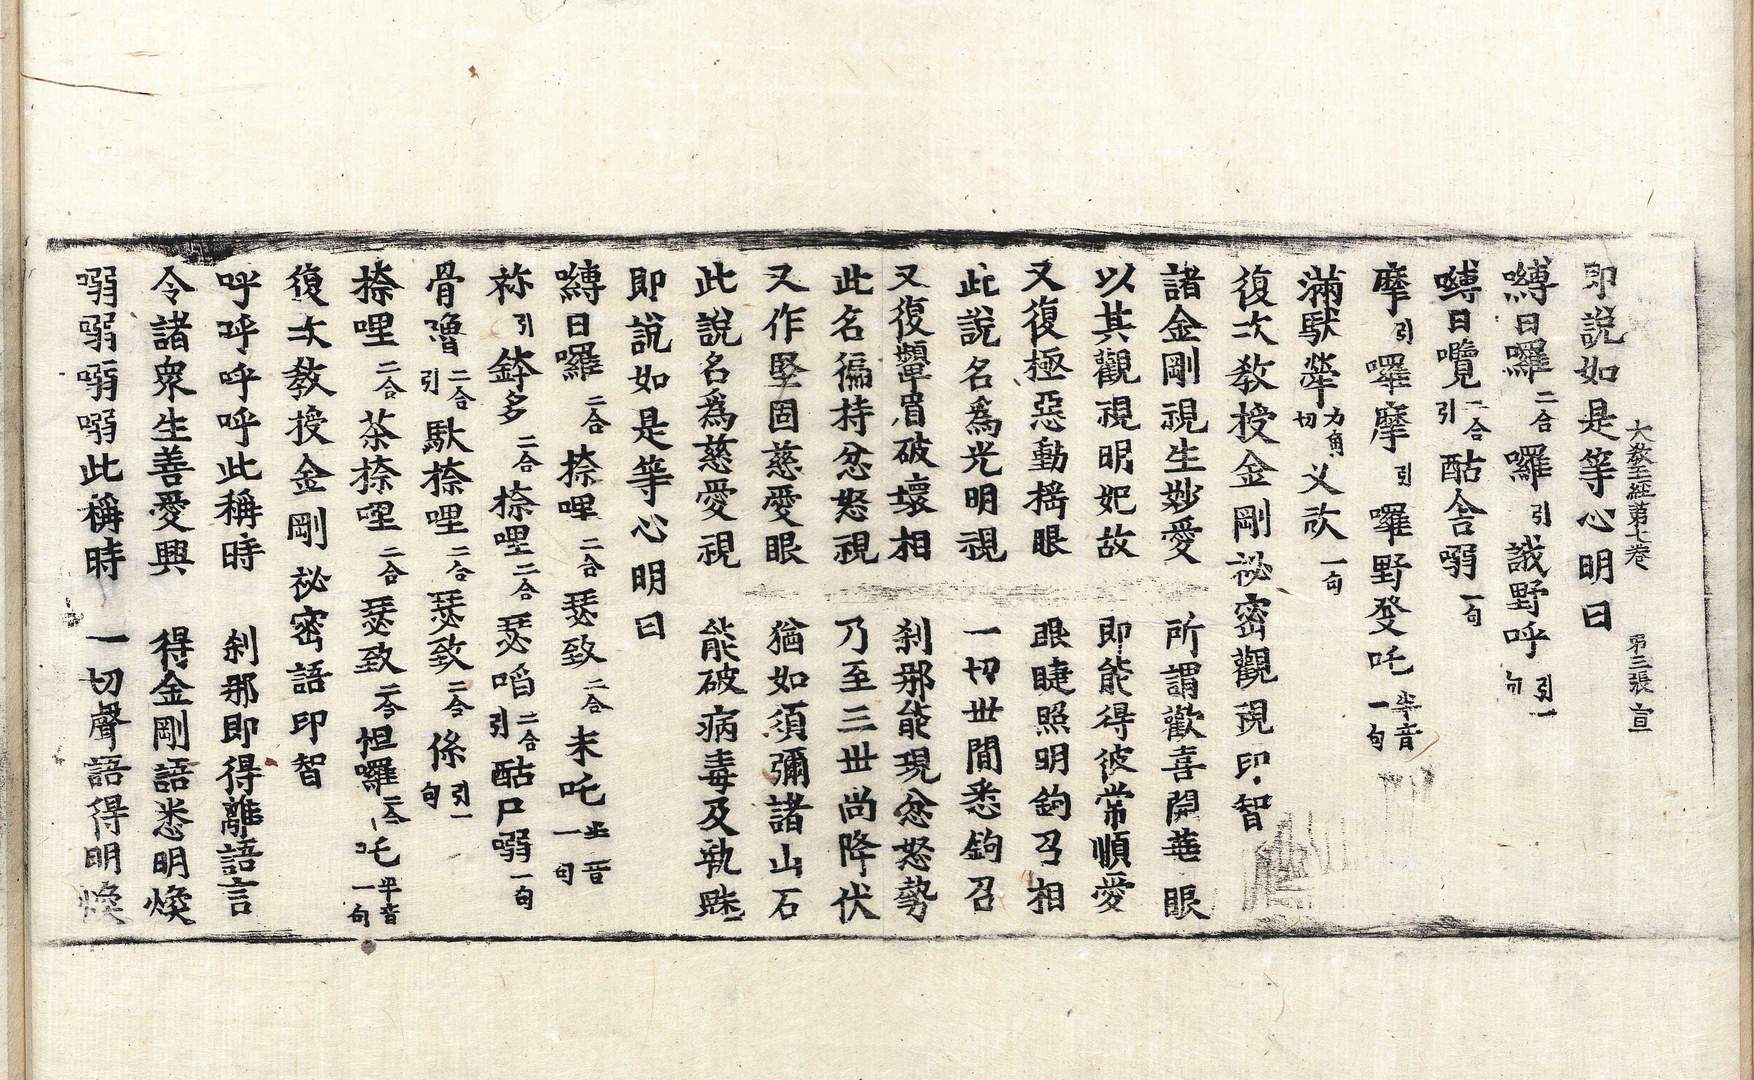 大教王經第七卷 第三張 宣
即說如是等心明曰
嚩日囉二合囉引誐野呼引一句
嚩日囕二合引酤舍弱一句
摩引囉摩引囉野發吒半音一句
滿馱犖力角切义㰦一句
復次教授金剛祕密觀視印智
諸金剛視生妙愛 所謂歡喜開華眼
以其觀視明妃故 即能得彼常順愛
又復極惡動搖眼 眼睫照明鉤召相
此說名爲光明視 一切世間悉鉤召
又復顰眉破壞相 刹那能現忿怒勢
此名徧持忿怒視 乃至三世尚降伏
又作堅固慈愛眼 猶如須彌諸山石
此說名爲慈愛視 能破病毒及執魅
即說如是等心明曰
嚩日囉二合捺哩二合瑟致二合末吒半音一句
祢引鉢多二合捺哩二合瑟㗖二合引酤尸弱一句
骨嚕二合引馱捺哩二合瑟致二合係引一句
捺哩二合茶捺哩二合瑟致二合怛囉二合吒半音一句
復次教授金剛祕密語印智
呼呼呼呼此稱時 刹那即得離語言
令諸衆生善愛興 得金剛語悉明煥
弱弱弱弱此稱時 一切聲語得明煥